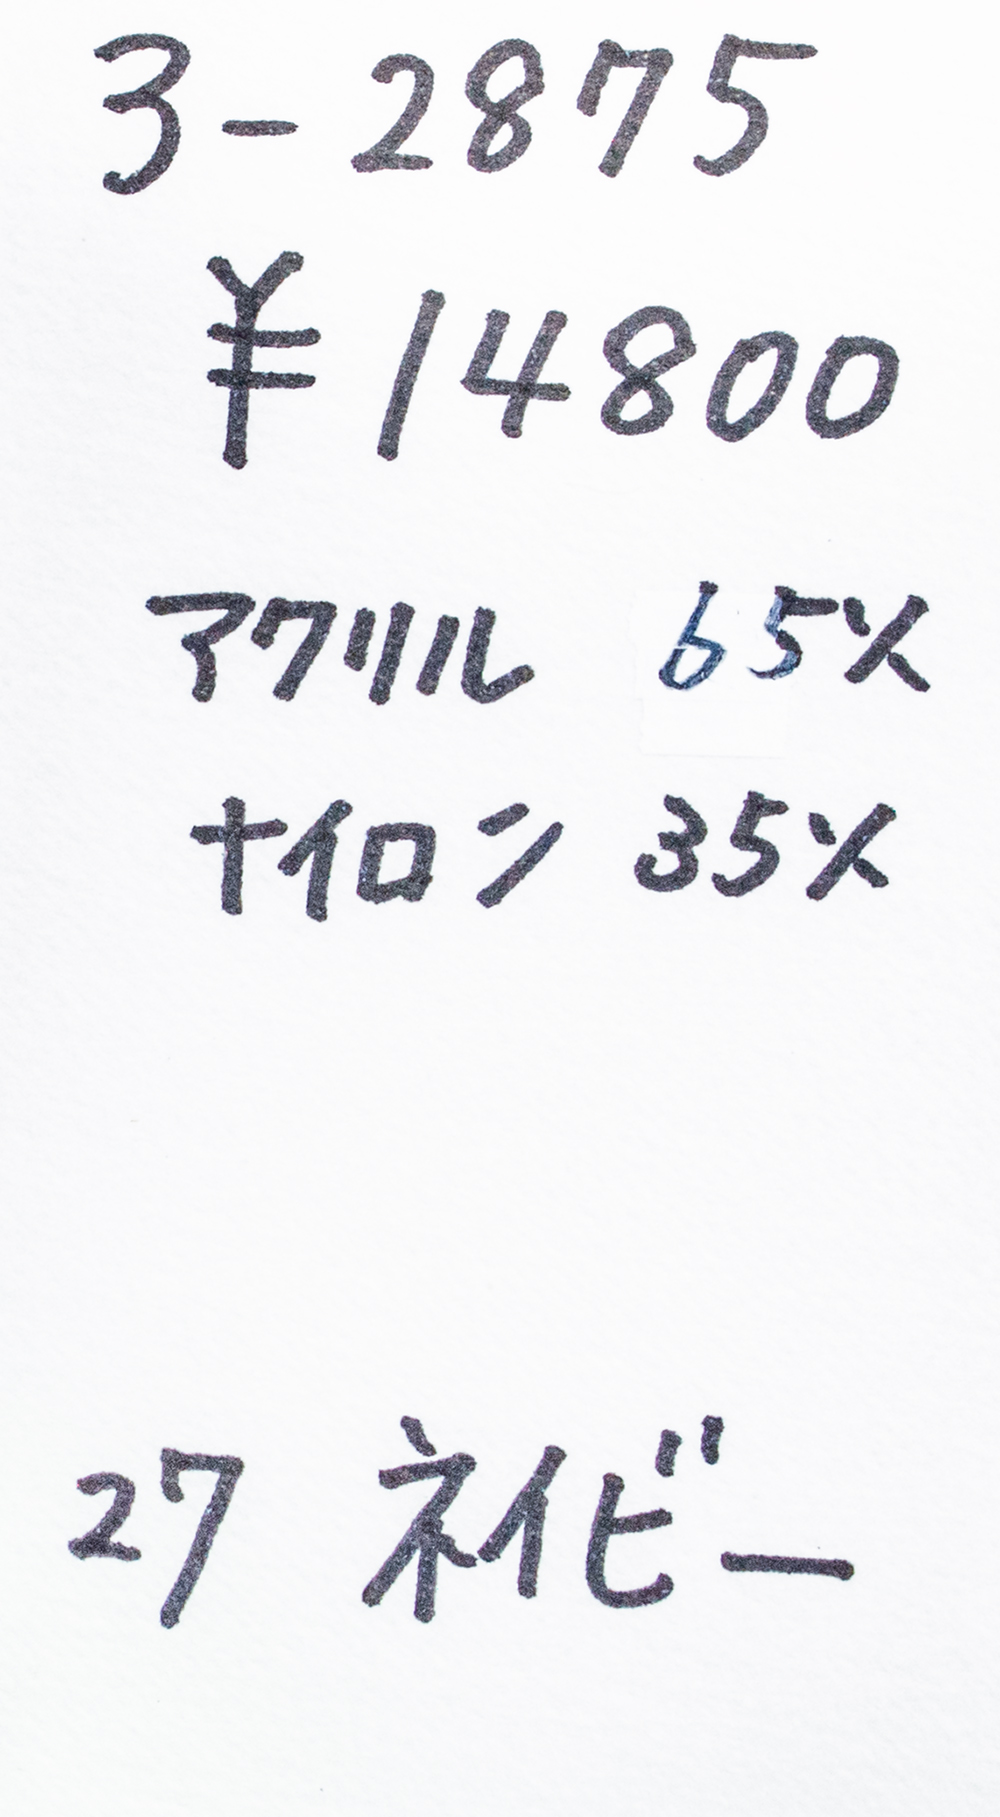 3-2875
¥14800
アクリル 65%
ナイロン 35%
27 ネイビー